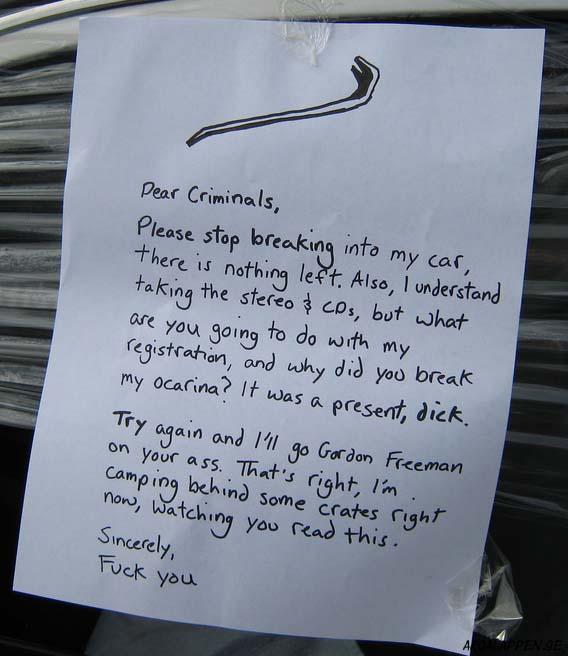 Dear Criminals,
Please stop breaking into my car,
there is nothing left. Also, I understand
taking the stereo & CDs, but what
are you going to do with my
registration, and why did you break
my ocarina? It was a present, dick.
Try again and I'll go Gordon Freeman
on your ass. That's right, I'm
camping behind some crates right
now, watching you read this.
Sincerely,
Fuck you